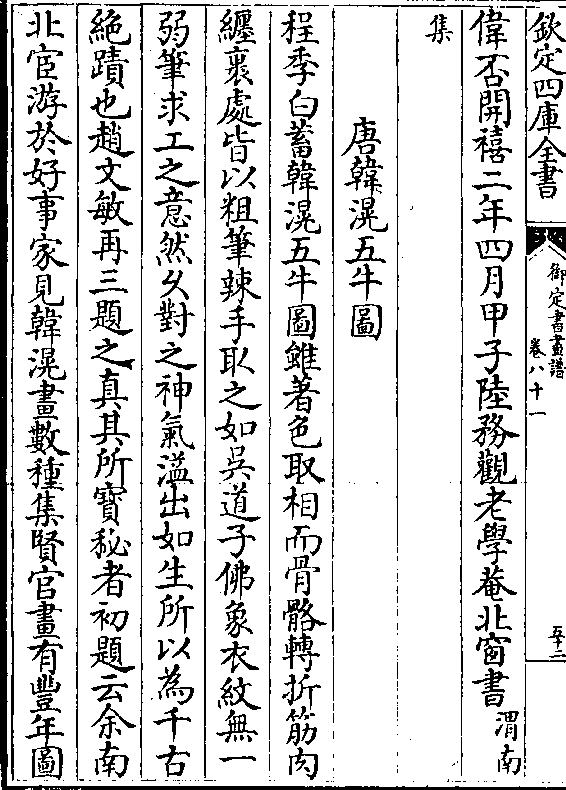 欽定四庫全書
御定書畫譜
卷八十一
五十二
偉否開禧二年四月甲子陸務觀老學菴北窗書渭南
集
唐韓滉五牛圖
程季白蓄韓滉五牛圖雖著色取相而骨骼轉折筋肉
纏裹處皆以粗筆辣手取之如吳道子佛象衣紋無一
弱筆求工之意然久對之神氣溢出如生所以為千古
絶蹟也趙文敏再三題之真其所寶秘者初題云余南
北宦游於好事家見韓滉畫數種集賢官畫有豐年圖